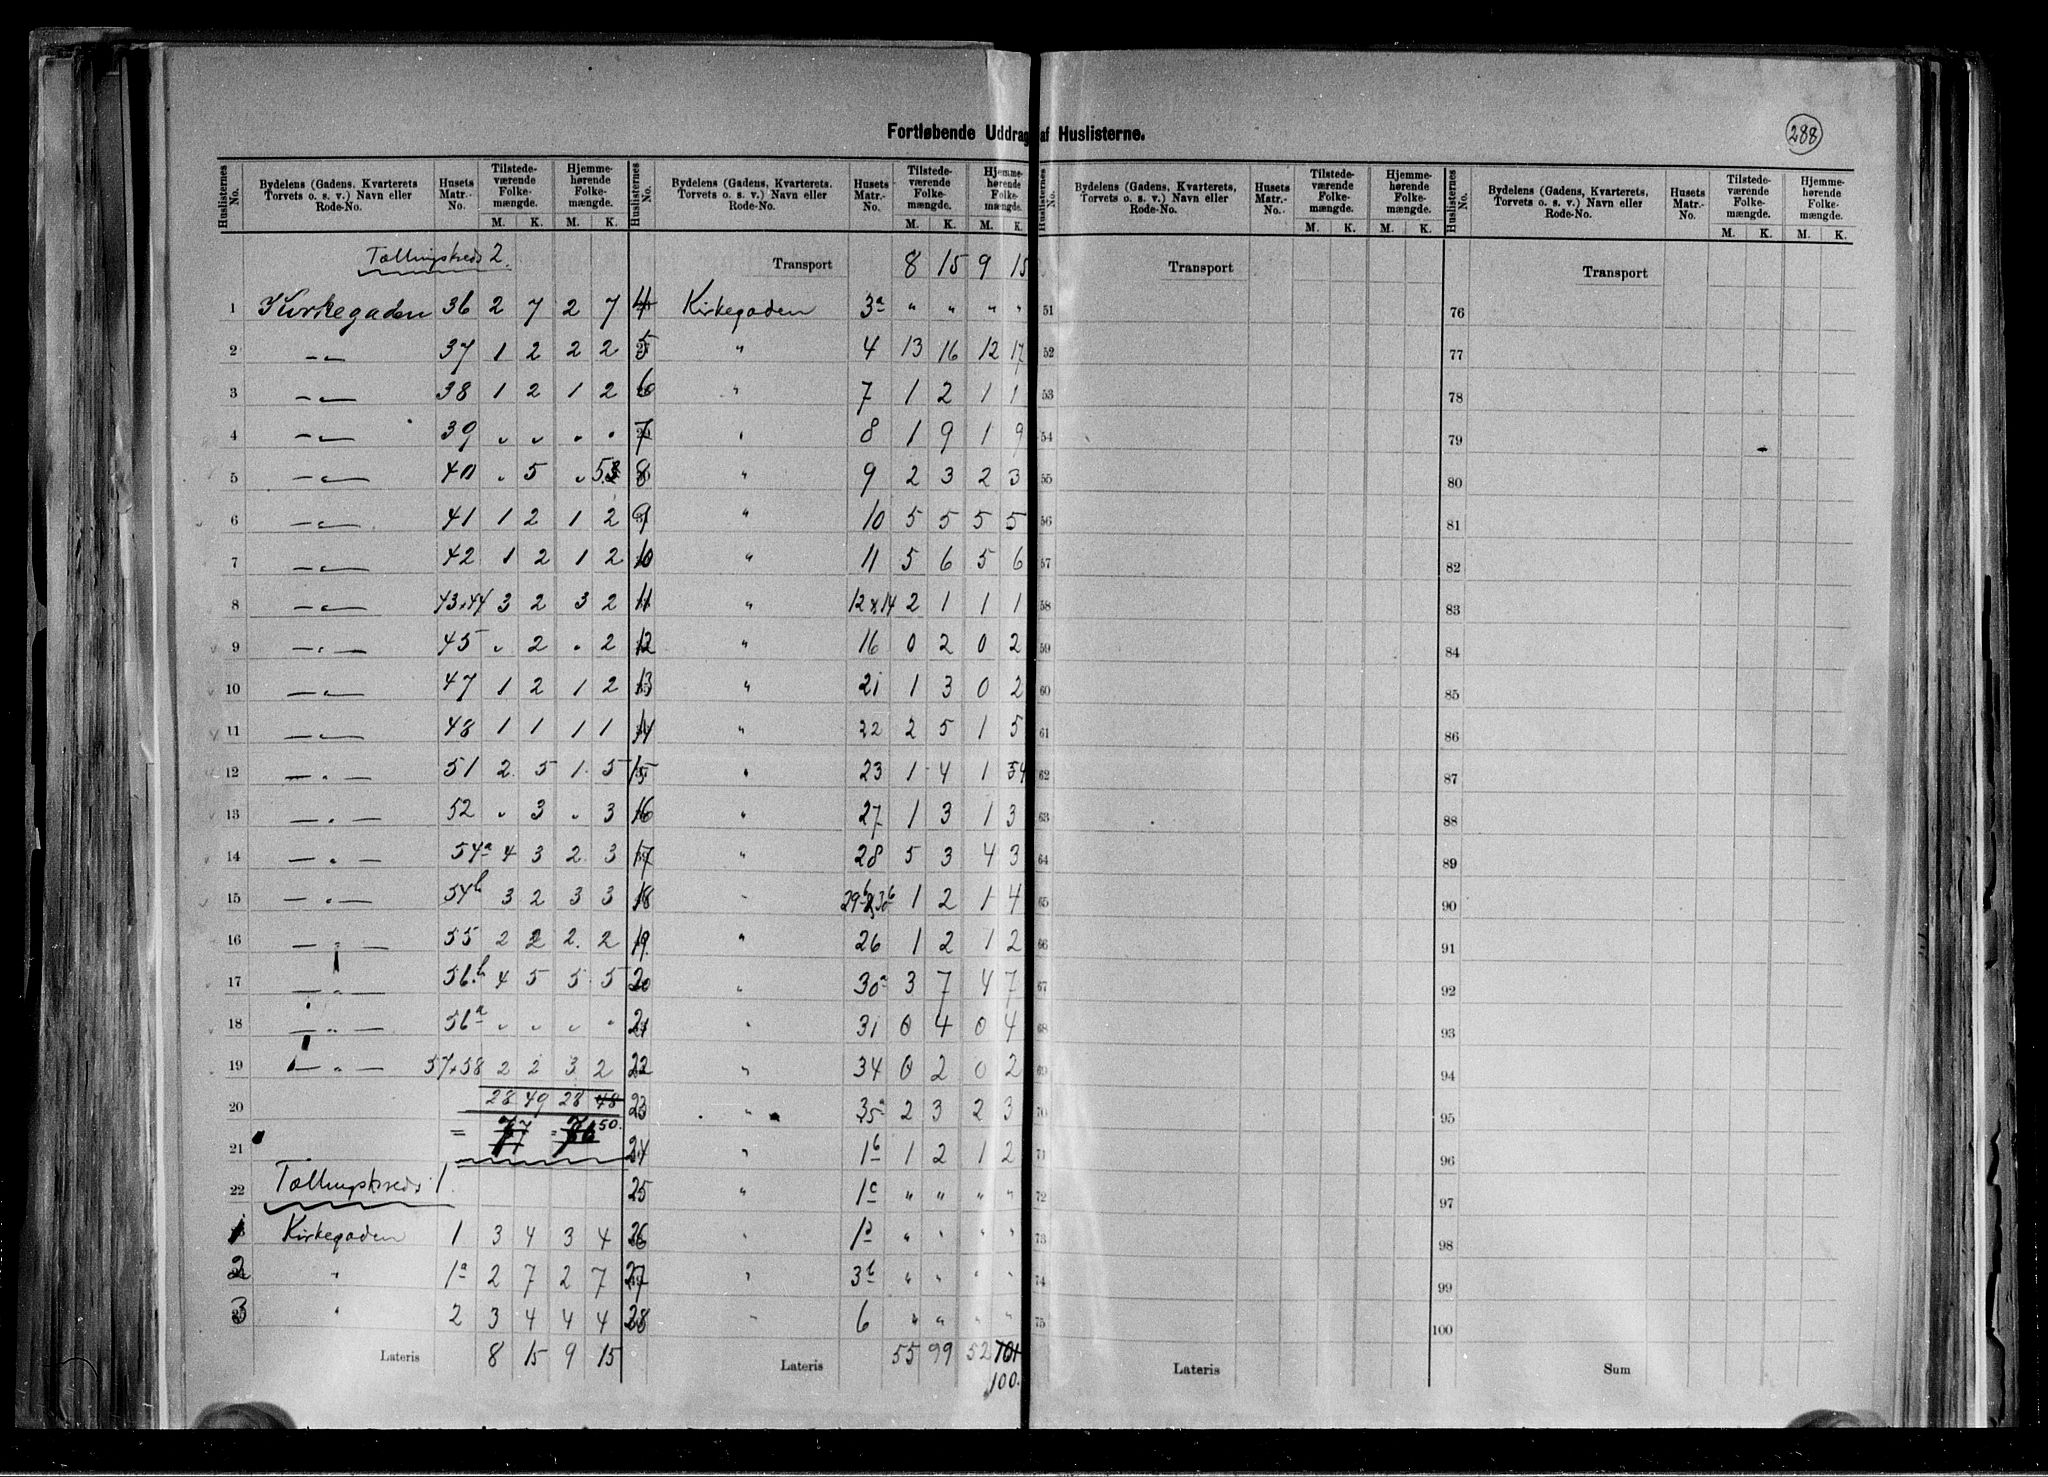 288
Fortløbende Uddrag af Huslisterne.
Huslisternes No. | Bydelens (Gadens, Kvarterets Torvets o. s. v.) Navn eller Rode-No. | Husets Matr.-No. | Tilstedeværende Folkemængde. M. K. | Hjemmehørende Folkemængde. M. K.
Tællingskreds 2.
1 Kirkegaden 36 2 7 2 7
2 —"— 37 1 2 2 2
3 —"— 38 1 2 1 2
4 —"— 39 " " " "
5 —"— 40 " 5 " 5
6 —"— 41 1 2 1 2
7 —"— 42 1 2 1 2
8 —"— 43+44 3 2 3 2
9 —"— 45 " 2 " 2
10 —"— 47 1 2 1 2
11 —"— 48 1 1 1 1
12 —"— 51 2 5 1 5
13 —"— 52 " 3 " 3
14 —"— 54a 4 3 2 3
15 —"— 54b 3 2 3 3
16 —"— 55 2 2 2 2
17 —"— 56b 4 5 5 5
18 —"— 56a " " " "
19 —"— 57+58 2 2 3 2
20 28 49 28 48
= 77 = 76 50.
21
22 Tællingskreds 1.
1 Kirkegaden 1 3 4 3 4
2 " 1a 2 7 2 7
3 " 2 3 4 4 4
Lateris 8 15 9 15
Huslisternes No. | Bydelens (Gadens, Kvarterets. Torvets o. s. v.) Navn eller Rode-No. | Husets Matr.-No. | Tilstedeværende Folkemængde. M. K. | Hjemmehørende Folkemængde. M. K.
Transport 8 15 9 15
4 Kirkegaden 3a " " " "
5 " 4 13 16 12 17
6 " 7 1 2 1 1
7 " 8 1 9 1 9
8 " 9 2 3 2 3
9 " 10 5 5 5 5
10 " 11 5 6 5 6
11 " 12 & 14 2 1 1 1
12 " 16 0 2 0 2
13 " 21 1 3 0 2
14 " 22 2 5 1 5
15 " 23 1 4 1 4
16 " 27 1 3 1 3
17 " 28 5 3 4 3
18 " 29b & 30b 1 2 1 4
19 " 26 1 2 1 2
20 " 30a 3 7 4 7
21 " 31 0 4 0 4
22 " 34 0 2 0 2
23 " 35a 2 3 2 3
24 " 1b 1 2 1 2
25 " 1c " " " "
26 " 1d " " " "
27 " 3b " " " "
28 " 6 " " " "
Lateris 55 99 52 101
100.
Huslisternes No. | Bydelens (Gadens, Kvarterets, Torvets o. s. v.) Navn eller Rode-No. | Husets Matr.-No. | Tilstedeværende Folkemængde. M. K. | Hjemmehørende Folkemængde. M. K.
Transport
51
52
53
54
55
56
57
58
59
60
61
62
63
64
65
66
67
68
69
70
71
72
73
74
75
Lateris
Huslisternes No. | Bydelens (Gadens, Kvarterets, Torvets o. s. v.) Navn eller Rode-No. | Husets Matr.-No. | Tilstedeværende Folkemængde. M. K. | Hjemmehørende Folkemængde. M. K.
Transport
76
77
78
79
80
81
82
83
84
85
86
87
88
89
90
91
92
93
94
95
96
97
98
99
100
Sum